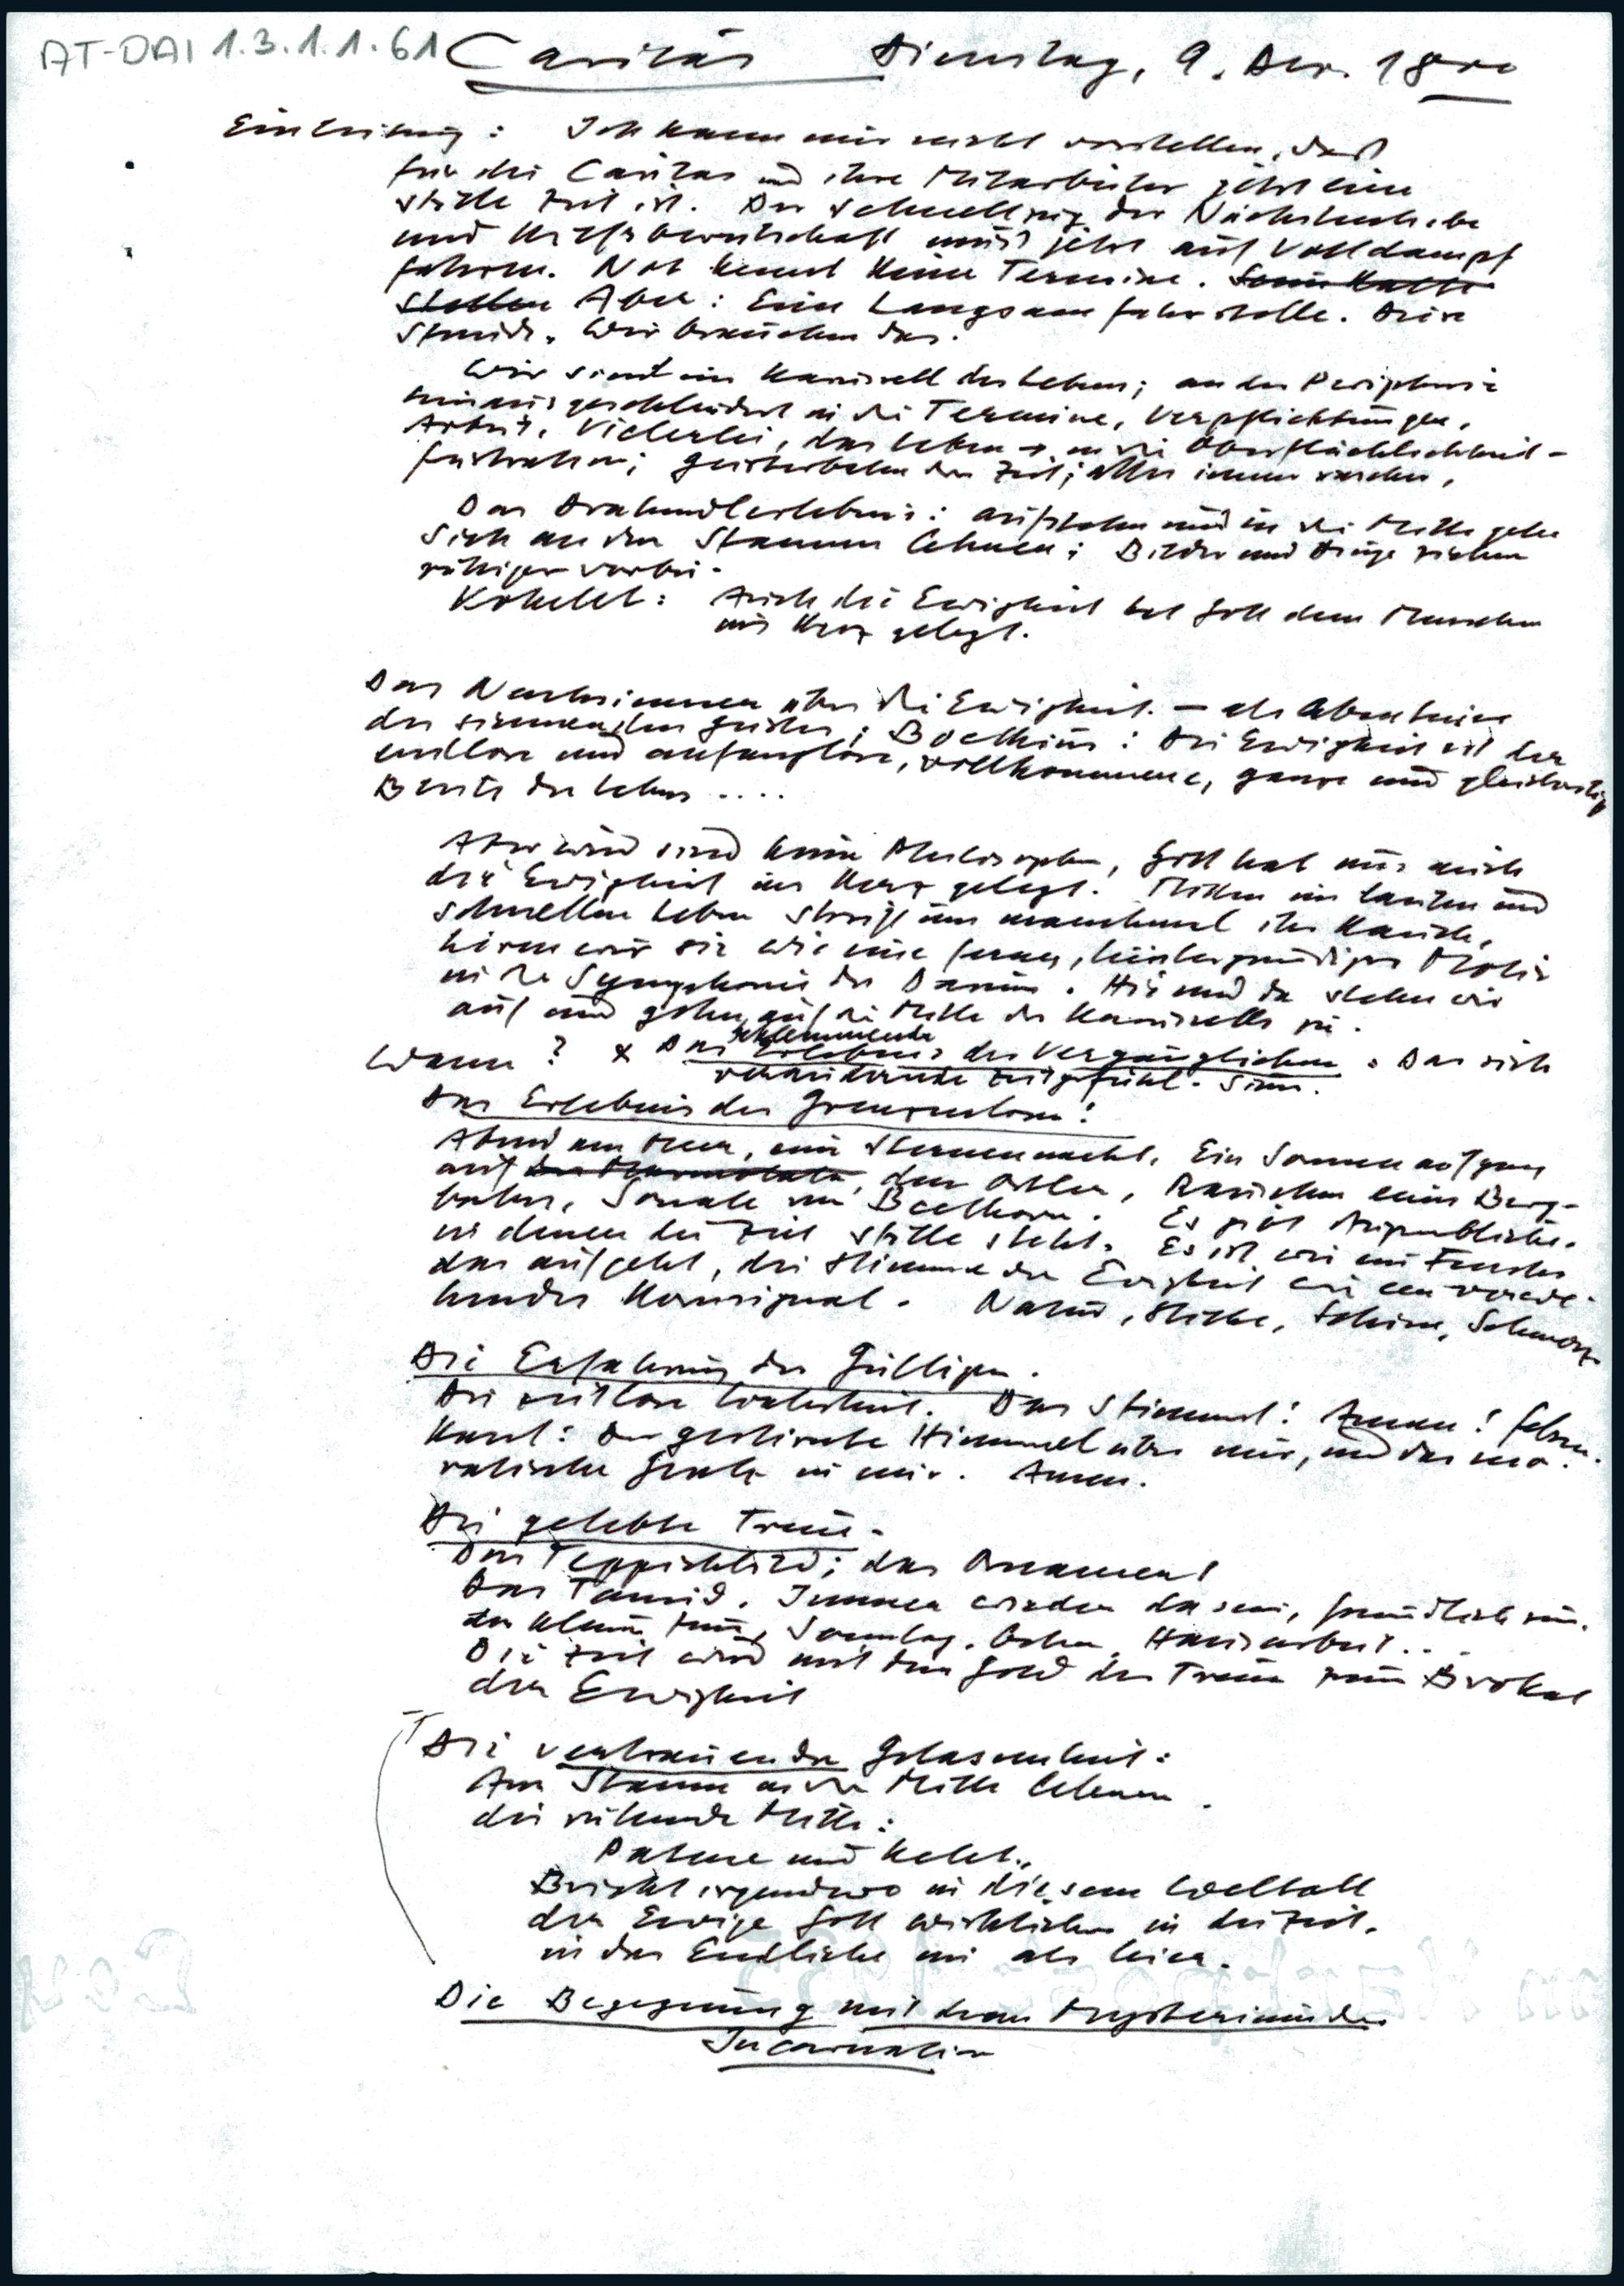 AT-DAI 1.3.1.1.61
Caritas Dienstag, 9. Dez. 18 00
Einleitung: Ich kann mir nicht vorstellen, daß
für die Caritas und ihre Mitarbeiter jetzt eine
stille Zeit ist. Der Schnellzug der Nächstenliebe
und Hilfsbereitschaft muß jetzt auf Volldampf
fahren. Not kennt keine Termine.
Aber: Eine Langsamfahrstelle. Diese
Stunde. Wir brauchen das.
Wir sind im Karussell des Lebens; an der Peripherie
hinausgeschleudert in die Termine, Verpflichtungen,
Arbeit, Vielerlei, das Leben → in die Oberflächlichkeit -
Geisterbahn der Zeit; alles immer rascher,
Das Erlebnis: aufstehen und in die Mitte gehen
sich an den Stamm lehnen; Bilder und Dinge ziehen
ruhiger vorbei.
Kohelet: Auch die Ewigkeit hat Gott dem Menschen
ins Herz gelegt.
Das Nachsinnen über die Ewigkeit. - als Abenteuer
des sinnenden Geistes; Boethius: Die Ewigkeit ist der
endlose und anfanglose, vollkommene, ganze und gleichzeitige
Besitz des Lebens ....
Aber wir sind keine Philosophen, Gott hat uns auch
die Ewigkeit ins Herz gelegt. Mitten im lauten und
schnellen Leben streift uns manchmal ihr Hauch,
hören wir sie wie eine fernes, hintergründiges Motiv
in der Symphonie des Daseins. Hie und da stehen wir
auf und gehen auf die Mitte des Karussells zu.
Wann? x Das beklemmende Erlebnis des Vergänglichen. Das sich
verändernde Zeitgefühl. Sinn.
Das Erlebnis des Grenzenlosen!
Abend am Meer, eine Sternennacht, Ein Sonnenaufgang
auf der Marmolata, dem Ortler, Rauschen eines Berg-
baches, Sonate von Beethoven. Es gibt Augenblicke,
in denen die Zeit stille steht. Es ist wie ein Fenster
das aufgeht, die Stimme der Ewigkeit wie ein verwe-
hendes Hornsignal. Natur, Stille, Schöne, Schmerz
Die Erfahrung des Gültigen.
Die zeitlose Wahrheit. Das stimmt! Amen!
Kant: Der gestirnte Himmel über mir, und das mo-
ralische Gesetz in mir. Amen.
Die gelebte Treue.
Das Teppichbild; das Ornament
Das Tamid. Immer wieder da sein, freundlich sein,
das kleine tun, Sonntag, Beten, Hausarbeit...
Die Zeit wird mit dem Gold der Treue zum Brokat
der Ewigkeit
Die vertrauende Gelassenheit:
Am Stamm in der Mitte lehnen.
die ruhende Mitte:
Patene und Kelch.
Bricht irgendwo in diesem Weltall
der Ewige Gott wirklicher in die Zeit,
in das Endliche ein als hier.
Die Begegnung mit dem Mysterium der
Incarnation